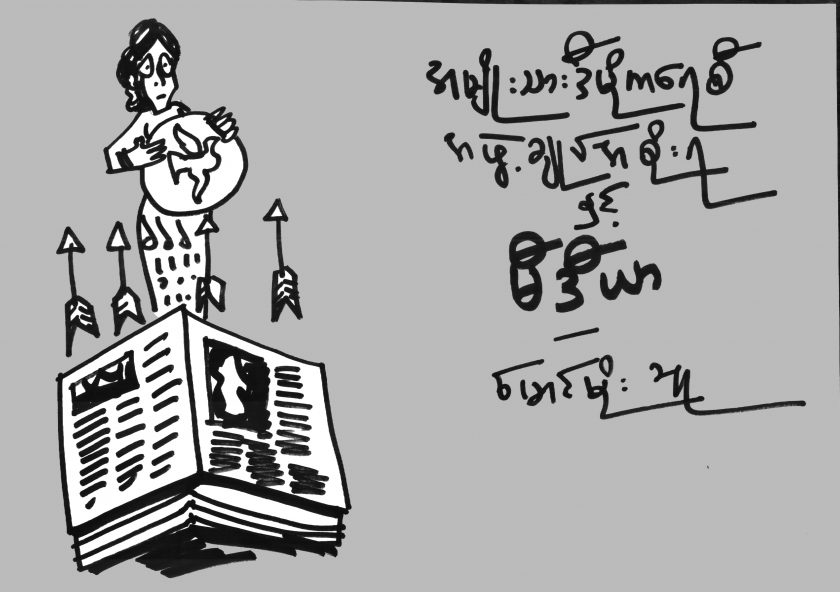 အမျိုးသားဒီမိုကရေစီ
အဖွဲ့ချုပ်အစိုးရ
နှင့်
မီဒီယာ
-
မောင်မိုးသူ